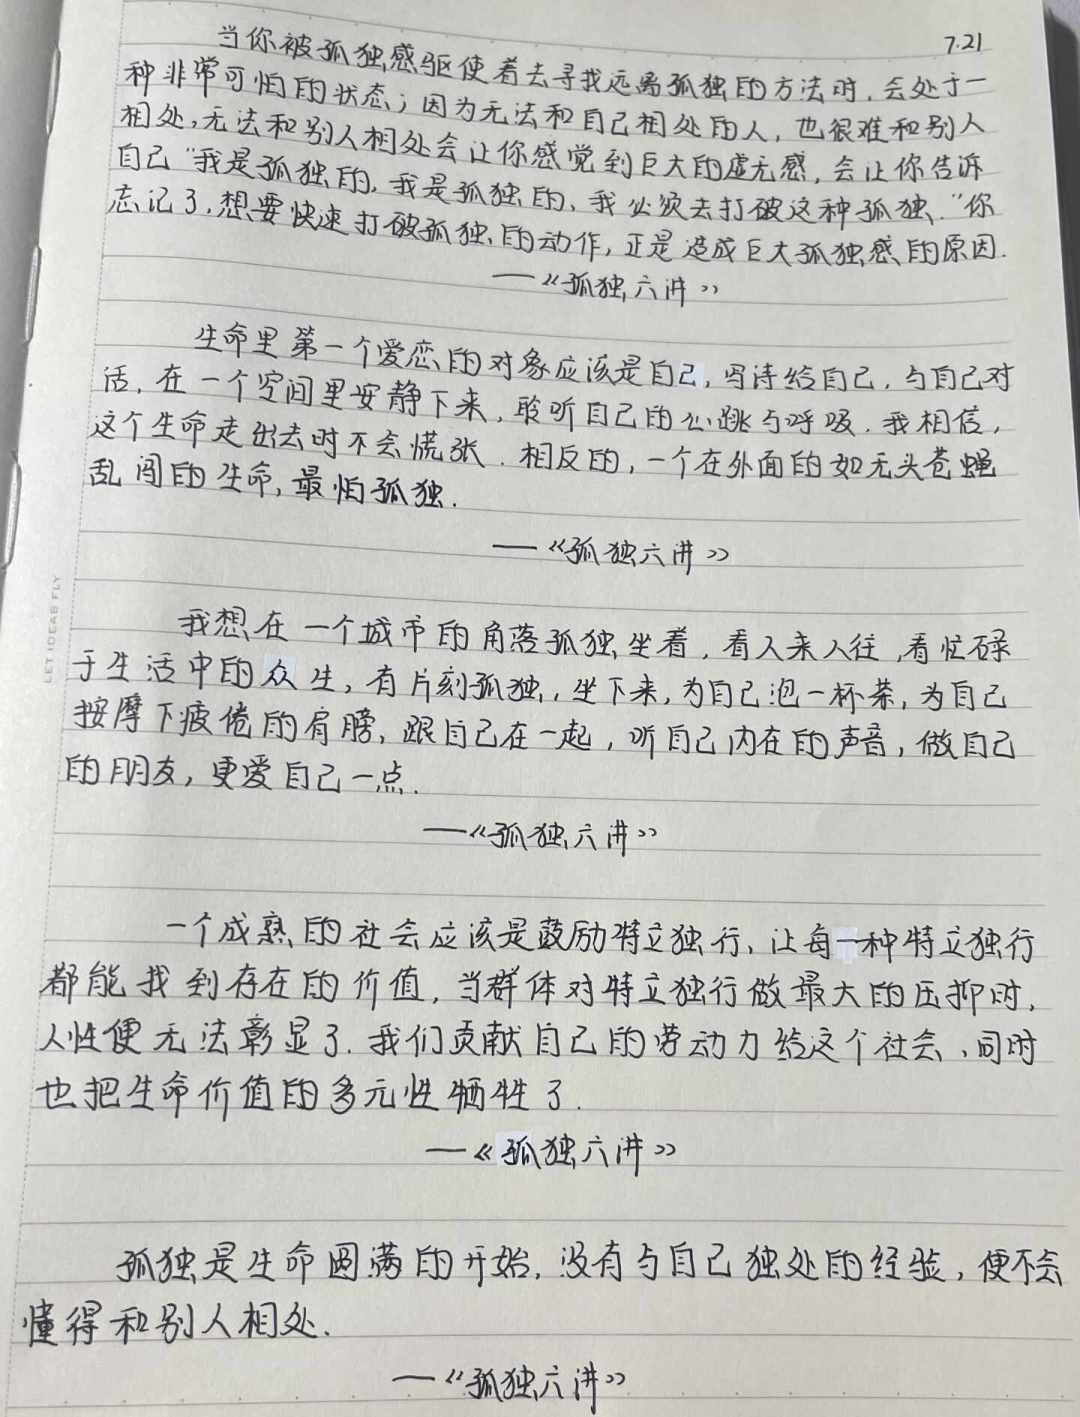 7.21
当你被孤独感驱使着去寻找远离孤独的方法时，会处于一
种非常可怕的状态；因为无法和自己相处的人，也很难和别人
相处，无法和别人相处会让你感觉到巨大的虚无感，会让你告诉
自己“我是孤独的，我是孤独的，我必须去打破这种孤独.”你
忘记了，想要快速打破孤独的动作，正是造成巨大孤独感的原因.
——《孤独六讲》
生命里第一个爱恋的对象应该是自己，写诗给自己，与自己对
话，在一个空间里安静下来，聆听自己的心跳与呼吸.我相信，
这个生命走出去时不会慌张.相反的，一个在外面的如无头苍蝇
乱闯的生命，最怕孤独.
——《孤独六讲》
我想在一个城市的角落孤独坐着，看人来人往，看忙碌
于生活中的众生，有片刻孤独，坐下来，为自己泡一杯茶，为自己
按摩下疲倦的肩膀，跟自己在一起，听自己内在的声音，做自己
的朋友，更爱自己一点.
——《孤独六讲》
一个成熟的社会应该是鼓励特立独行，让每一种特立独行
都能找到存在的价值，当群体对特立独行做最大的压抑时，
人性便无法彰显了.我们贡献自己的劳动力给这个社会，同时
也把生命价值的多元性牺牲了.
——《孤独六讲》
孤独是生命圆满的开始，没有与自己独处的经验，便不会
懂得和别人相处.
——《孤独六讲》
LET IDEAS FLY